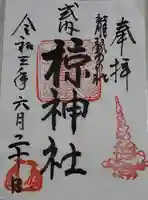 奉拝
式内
椋神社
令和三年六月二十日